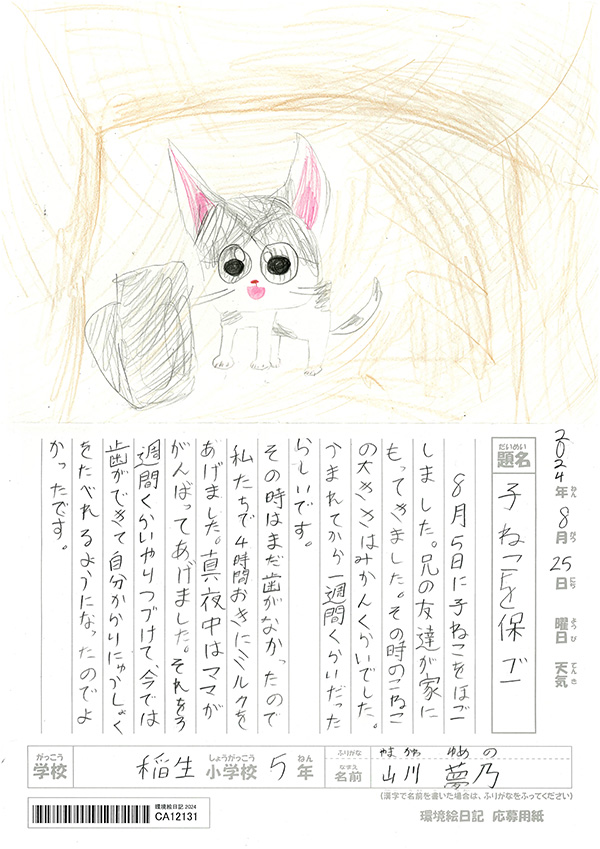 2024年 8月 25日 曜日 天気
ねん がつ にち ようび てんき
だいめい
題名
子ねこを保ゴ
8月5日に子ねこをほゴ
しました。兄の友達が家に
もってきました。その時のこねこ
の大きさはみかんくらいでした。
うまれてから一週間くらいだった
らしいです。
その時はまだ歯がなかったので
私たちで4時間おきにミルクを
あげました。真夜中はママが
がんばってあげました。それを3
週間くらいやりつづけて、今では
歯ができて自分からりにゅうしょく
をたべれるようになったのでよ
かったです。
がっこう しょうがっこう ねん ふりがな やま かわ ゆめ の
学校 稲生 小学校 5年 なまえ 名前 山川 夢乃
(漢字で名前を書いた場合は、ふりがなをふってください)
環境絵日記2024
CA12131
環境絵日記 応募用紙